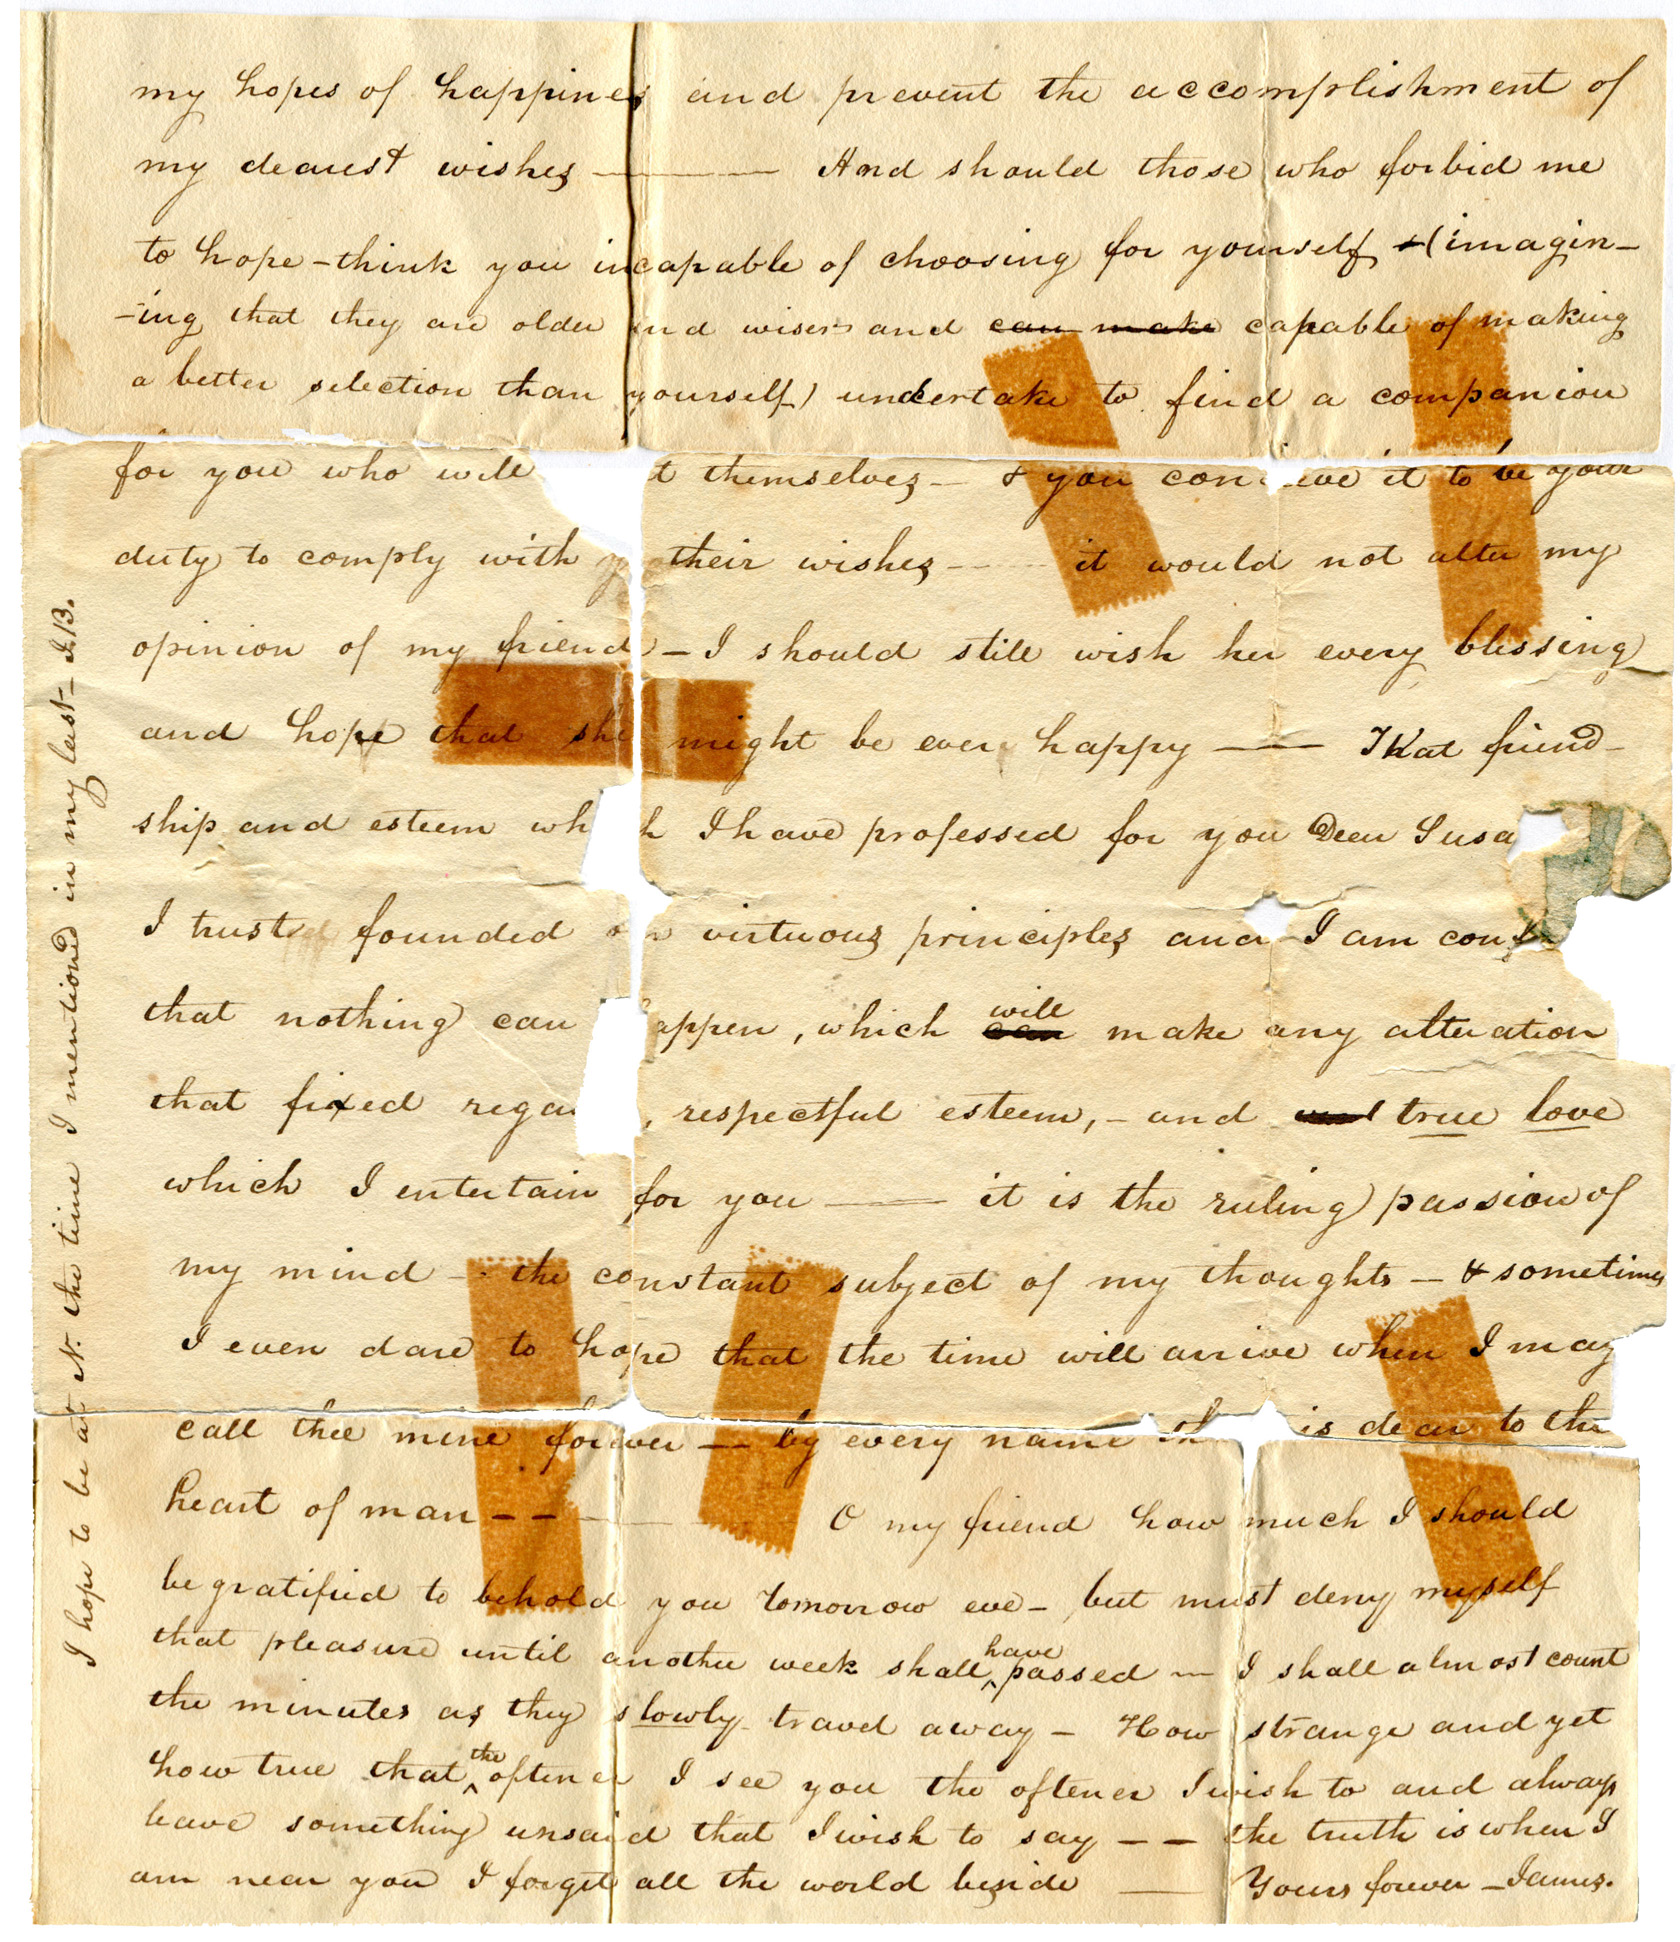 my hopes of happines and prevent the accomplishment of
my dearest wishes ——— And should those who forbid me
to hope – think you incapable of choosing for yourself (imagin-
-ing that they are older and wiser and can make capable of making
a better selection than yourself) undertake to find a companion
for you who will themselves – & you it to be your
duty to comply with their wishes —— it would not alter my
opinion of my friend – I should still wish her every blessing
and hope that she might be ever happy —— That friend-
ship and esteem wh h I have professed for you Dear Susa
I trust founded on virtuous principles and I am
that nothing can appen, which can will make any alteration
that fixed rega , respectful esteem, – and true love
which I entertain for you —— it is the ruling passion of
my mind – the constant subject of my thoughts – & sometimes
I even dare to hope that the time will arrive when I may
call thee mine forever — by every name is dear to the
heart of man – – —— O my friend how much I should
be gratified to behold you tomorrow eve – but must deny myself
that pleasure until another week shall ^have passed — I shall almost count
the minutes as they slowly travel away – How strange and yet
how true that ^the oftener I see you the oftener I wish to and always
leave something unsaid that I wish to say – – the truth is when I
am near you I forget all the world beside —— Yours forever – James.
I hope to be at N. the time I mentioned in my last – J.B.